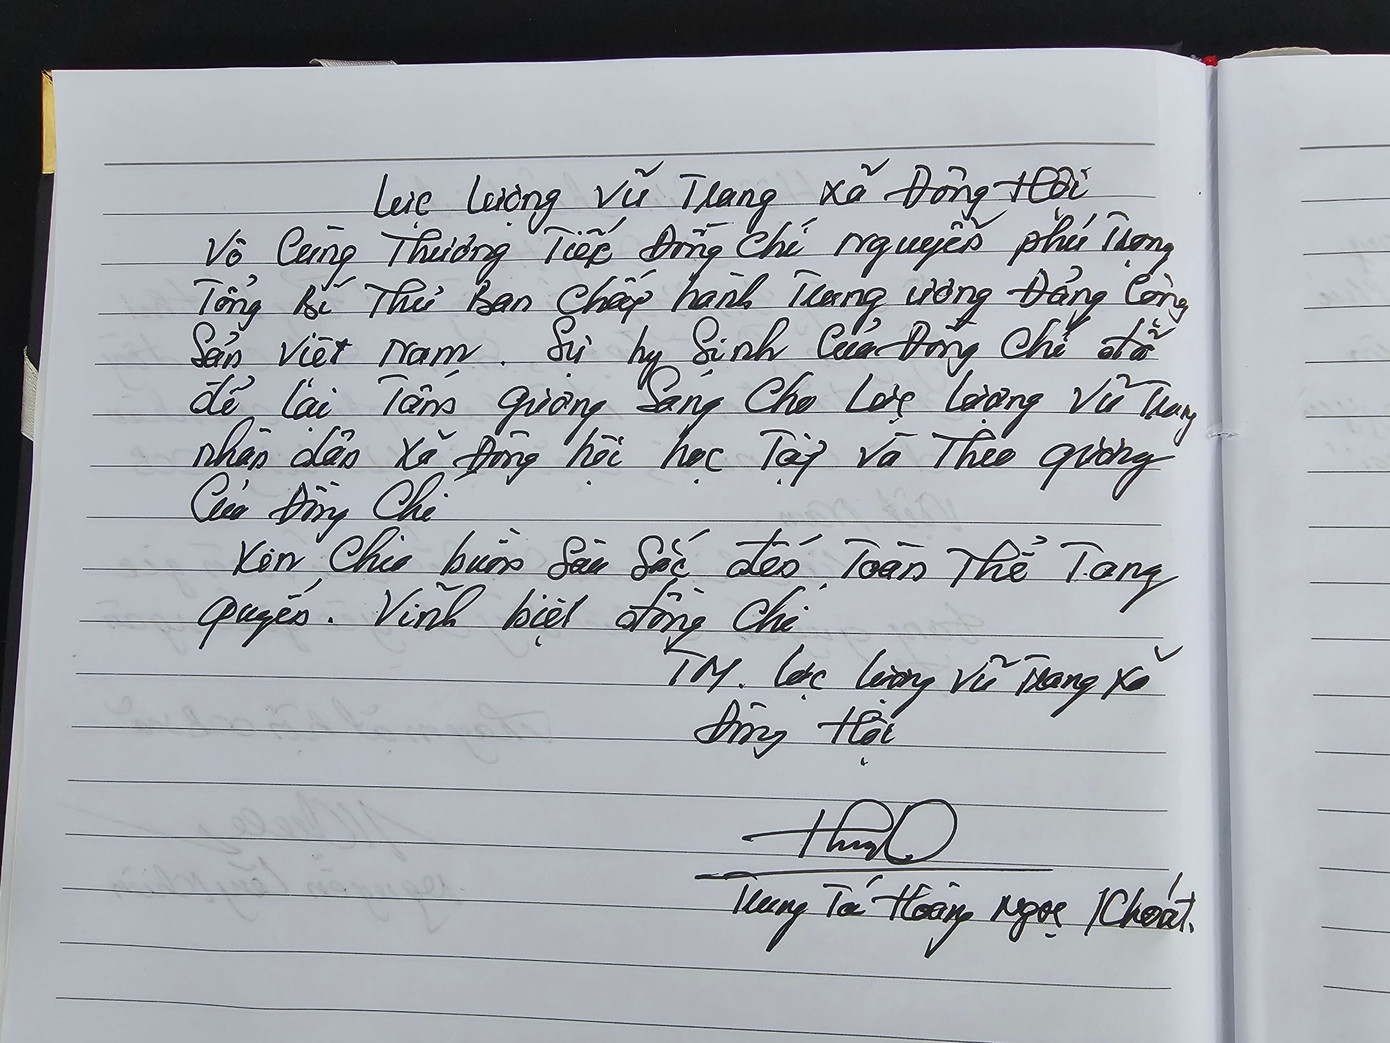 Lực lượng vũ Trang xã Đông Hội
Vô Cùng Thương Tiếc Đồng Chí Nguyễn phú Trọng
Tổng Bí Thư Ban Chấp hành Trung ương Đảng Cộng
Sản Việt Nam. Sự hy Sinh Của Đồng Chí đã
để lại Tấm gương Sáng Cho Lực lượng Vũ Trang
nhân dân xã Đông hội học Tập và Theo gương
Của Đồng Chí
Xin Chia buồn Sâu Sắc đến Toàn Thể Tang
quyến. Vĩnh biệt đồng Chí
TM. Lực lượng Vũ Trang Xã
Đông Hội
Trung Tá Hoàng Ngọc Khoát.